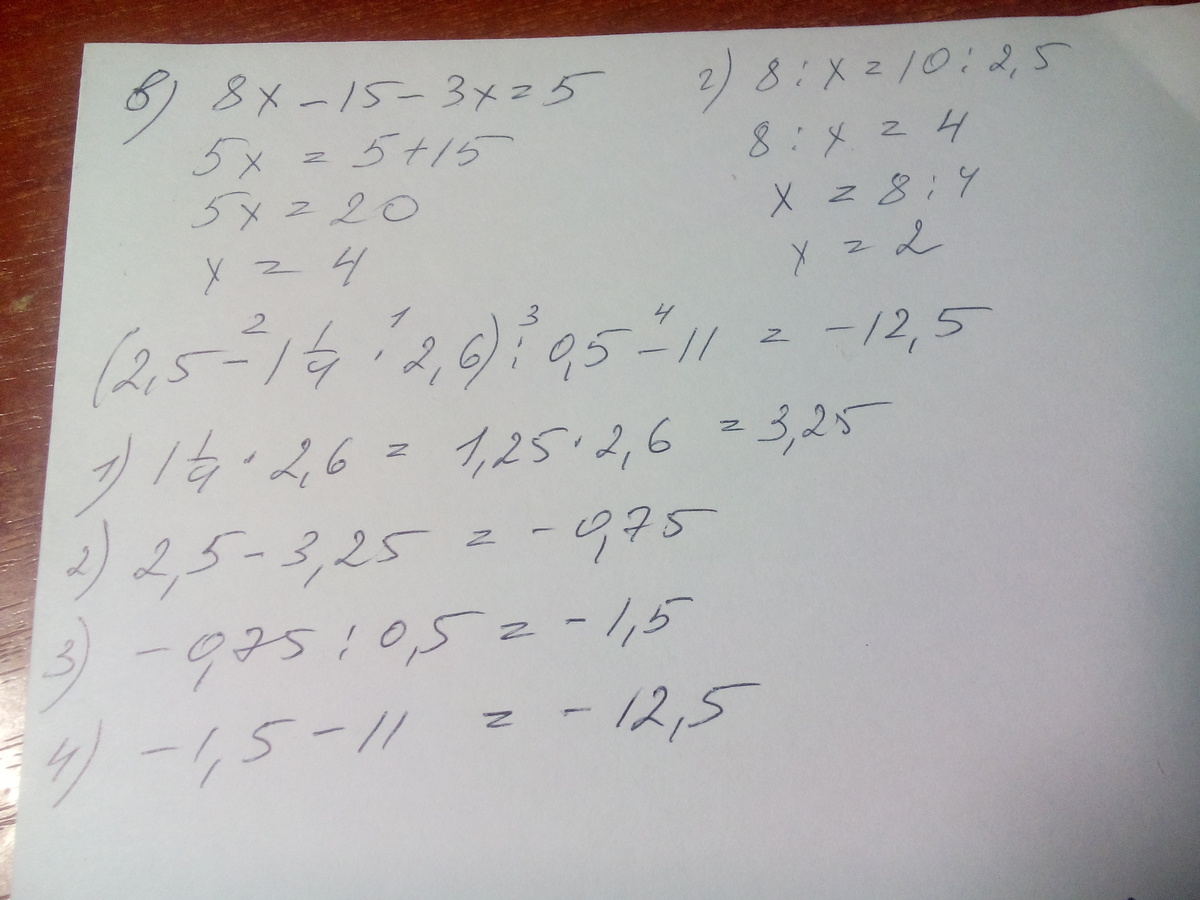 в) 8x - 15 - 3x = 5
5x = 5 + 15
5x = 20
x = 4
г) 8 : x = 10 : 2,5
8 : x = 4
x = 8 : 4
x = 2
2 1 3 4
(2,5 - 1 1/4 · 2,6) : 0,5 - 11 = -12,5
1) 1 1/4 · 2,6 = 1,25 · 2,6 = 3,25
2) 2,5 - 3,25 = -0,75
3) -0,75 : 0,5 = -1,5
4) -1,5 - 11 = -12,5